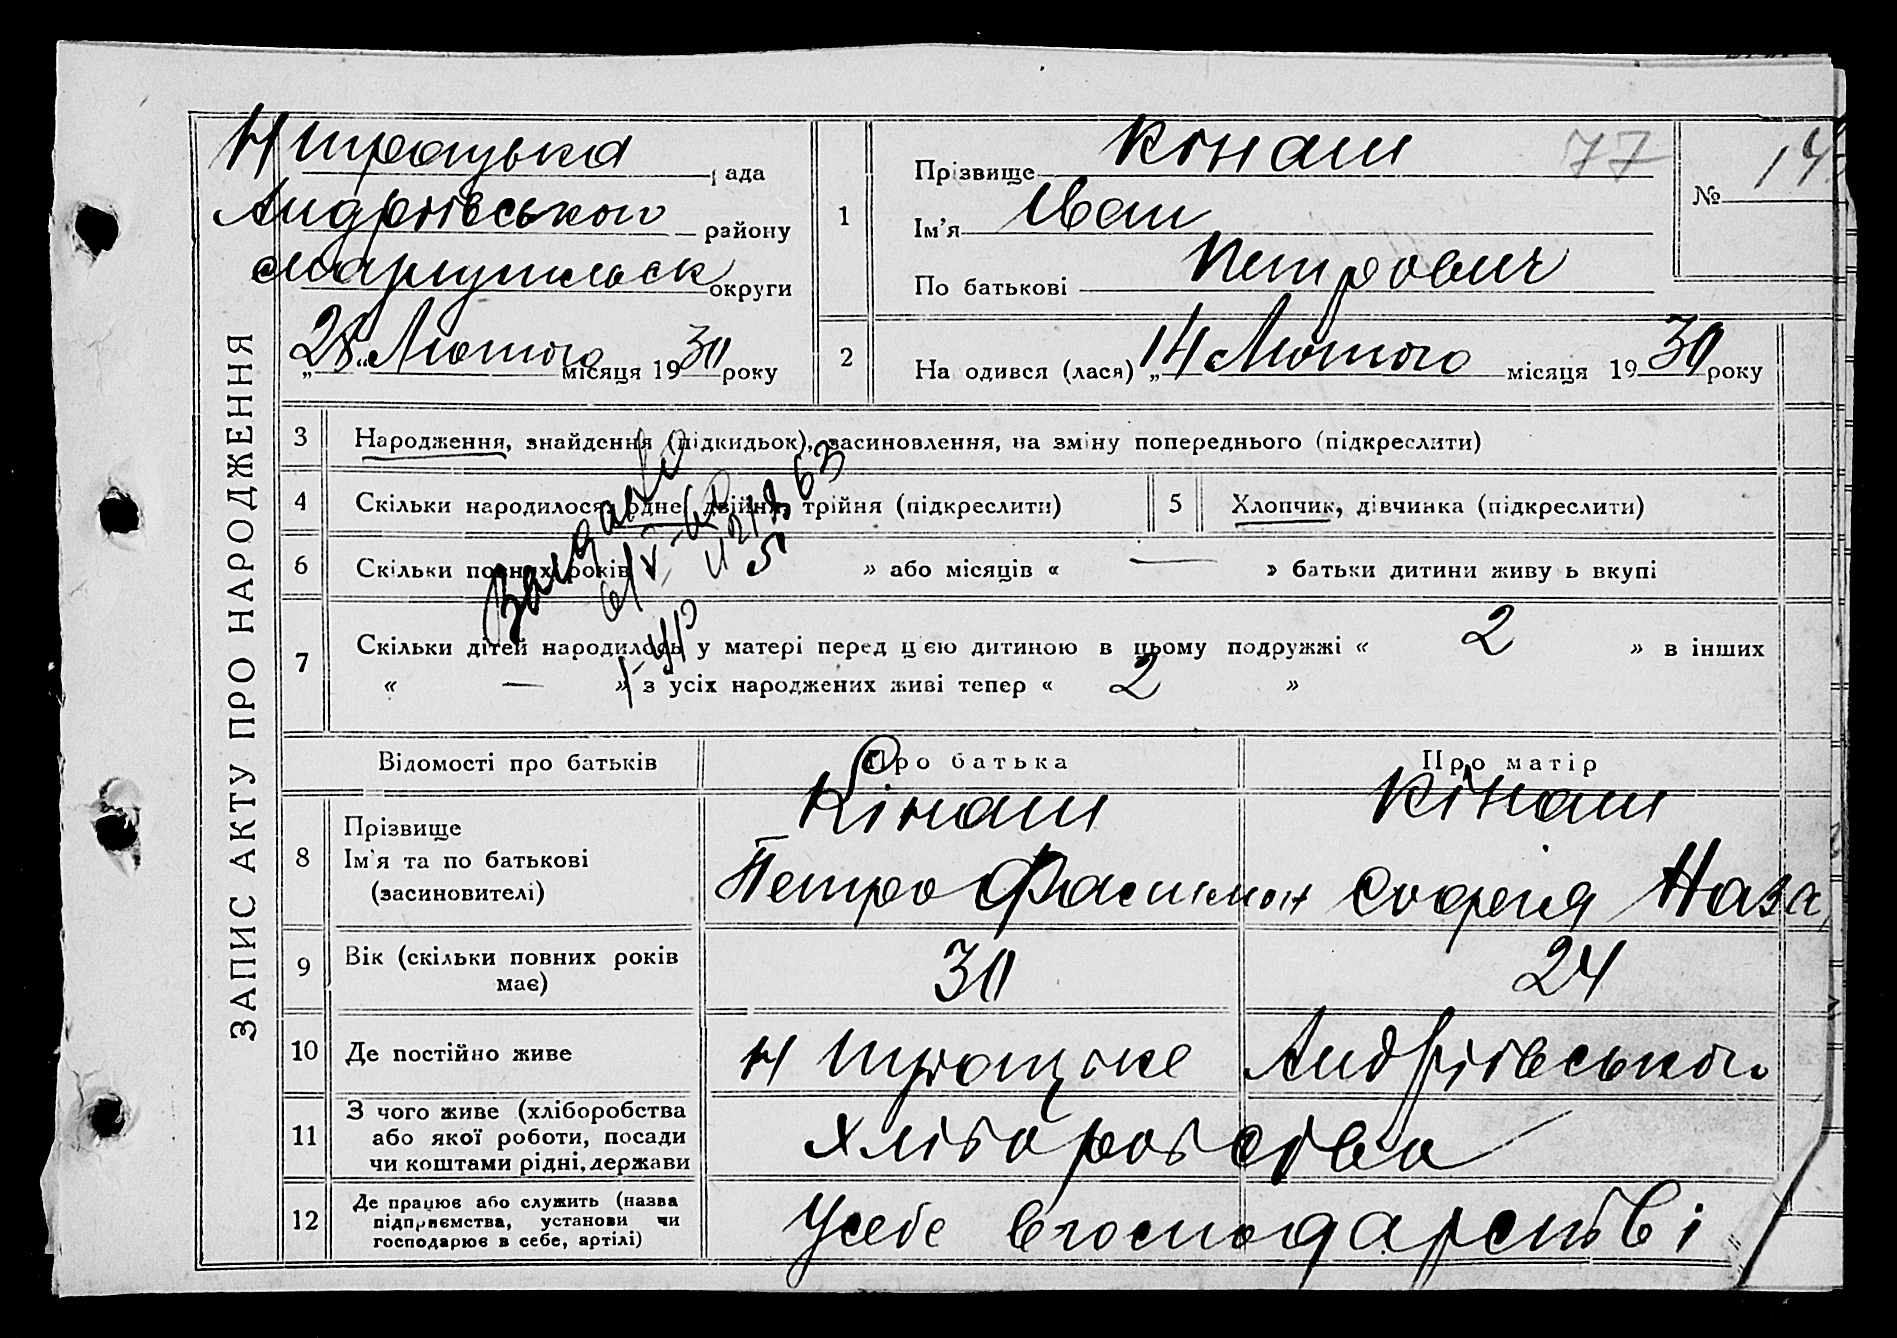 ЗАПИС АКТУ ПРО НАРОДЖЕННЯ
рада
Андріївського району
округи
„28“ Лютого місяця 1930 року
1
Прізвище Кінаш
Ім'я Іван
По батькові Петрович
77
№ 14
2
Народився (лася) „14 Лютого місяця 1930 року
3 Народження, знайдення (підкидьок), засиновлення, на зміну попереднього (підкреслити)
4 Скільки народилося: одне, двійня, трійня (підкреслити)
5 Хлопчик, дівчинка (підкреслити)
6 Скільки повних років » або місяців « — » батьки дитини живуть вкупі
7 Скільки дітей народилось у матері перед цією дитиною в цьому подружжі « 2 » в інших
« — » з усіх народжених живі тепер « 2 »
Відомості про батьків Про батька Про матір
8 Прізвище
Ім'я та по батькові
(засиновителі)
Кінаш
Петро
Кінаш
Наза
9 Вік (скільки повних років має)
30 24
10 Де постійно живе
Н Троцьке Андріївського
11 З чого живе (хліборобства
або якої роботи, посади
чи коштами рідні, держави
хліборобства
12 Де працює або служить (назва
підприємства, установи чи
господарює в себе, артілі)
Усебе вгосподарстві